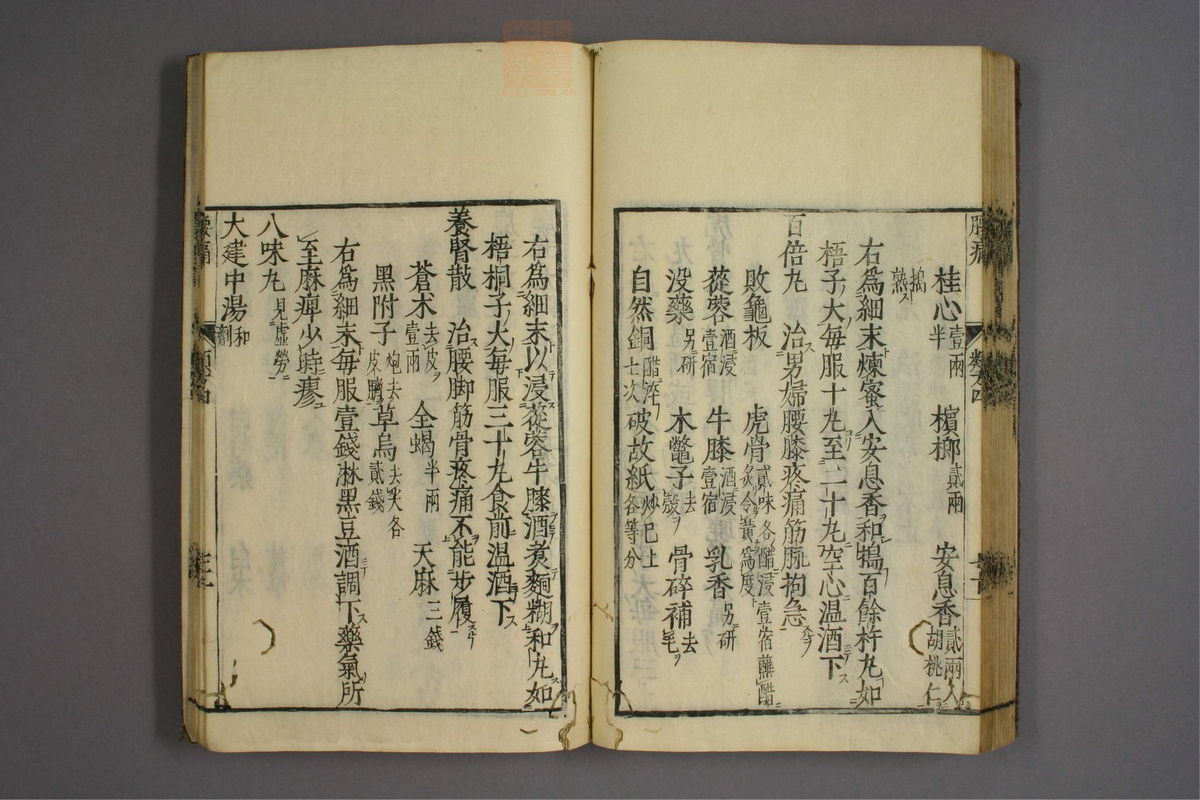 腰痛
桂心壹兩半 檳榔貳兩 安息香貳兩入胡桃仁
搗熟
右爲細末煉蜜入安息香和犒百餘杵丸如
梧子大每服十丸至二十丸空心溫酒下
百倍丸 治男婦腰膝疼痛筋脈拘急
敗龜板 虎骨貳味各醋浸壹宿蘸醋炙令黃爲度
蓯蓉酒浸壹宿 牛膝酒浸壹宿 乳香另研
没藥另研 木鼈子去殼 骨碎補去毛
自然銅醋淬七次 破故紙炒已上各等分
右爲細末以浸蓯蓉牛膝酒煮麵糊和丸如
梧桐子大每服三十丸食前溫酒下
養腎散 治腰脚筋骨疼痛不能步履
蒼朮去皮壹兩 全蝎半兩 天麻三錢
黑附子炮去皮臍 草烏去尖各貳錢
右爲細末每服壹錢淋黑豆酒調下藥氣所
至麻痺少時瘳
八味丸見虛勞
大建中湯和劑
腰痛